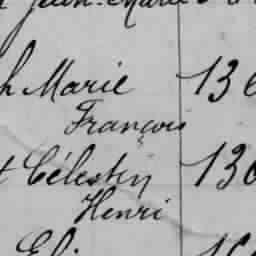 Jean-Marie
h Marie 136
François
t Célestin 130
Henri